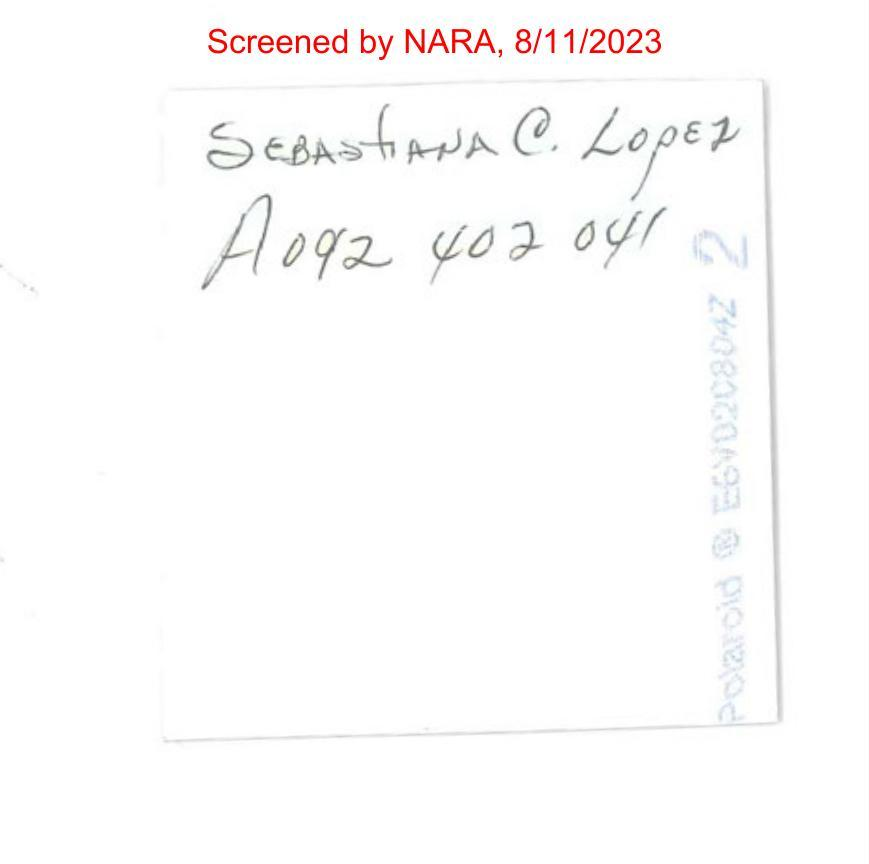 Screened by NARA, 8/11/2023
SEBASTIANA C. LOPEZ
A092 402 041
Polaroid ® E6V0208042 2